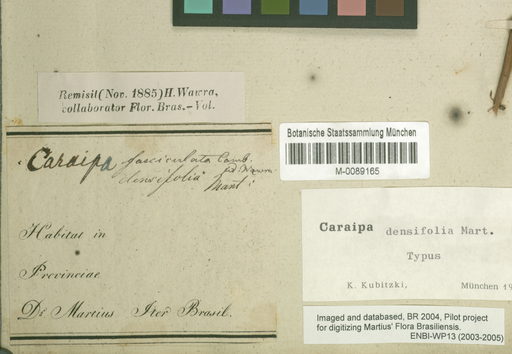 Remisit (Nov. 1885) H. Wawra,
collaborator Flor. Bras. - Vol.
Caraipa fasciculata Camb.
densifolia
Mart.
Habitat in
Provinciae
Dr Martius Iter Brasil.
Botanische Staatssammlung München
M-0089165
Caraipa densifolia Mart.
Typus
K. Kubitzki, München 19
Imaged and databased, BR 2004, Pilot project
for digitizing Martius' Flora Brasiliensis.
ENBI-WP13 (2003-2005)